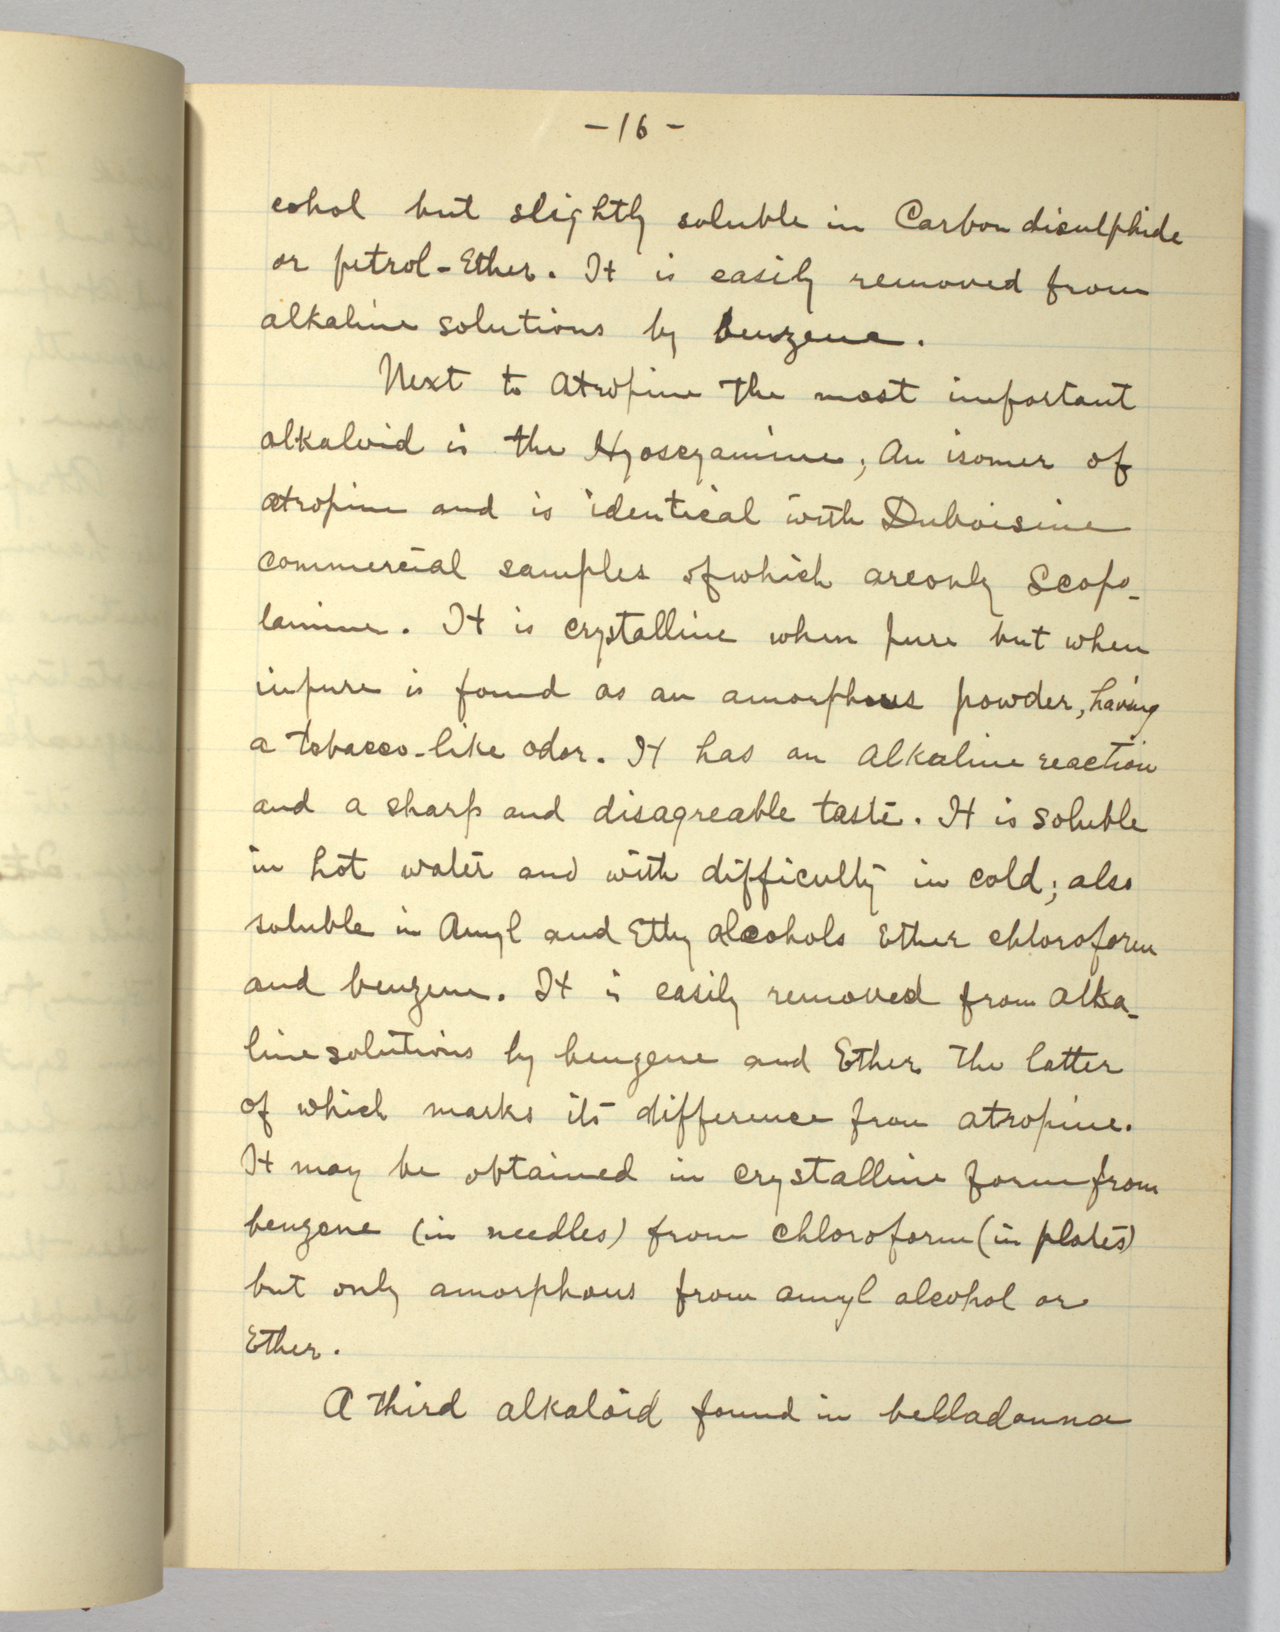 -16-
cohol but slightly soluble in Carbon disulphide
or petrol-Ether. It is easily removed from
alkaline solutions by benzene.
Next to Atropine the most important
alkaloid is the Hyoscyamine; An isomer of
atropine and is identical with Duboisine
commercial samples of which are only Scopo-
lamine. It is crystalline when pure but when
inpure is found as an amorphous powder, having
a tobacco-like odor. It has an alkaline reaction
and a sharp and disagreable taste. It is soluble
in hot water and with difficulty in cold; also
soluble in Amyl and Ethy alcohols Ether chloroform
and benzene. It is easily removed from alka-
line solutions by benzene and Ether the latter
of which marks its difference from atropine.
It may be obtained in crystalline form from
benzene (in needles) from chloroform (in plates)
but only amorphous from amyl alcohol or
Ether.
A third alkaloid found in belladonna